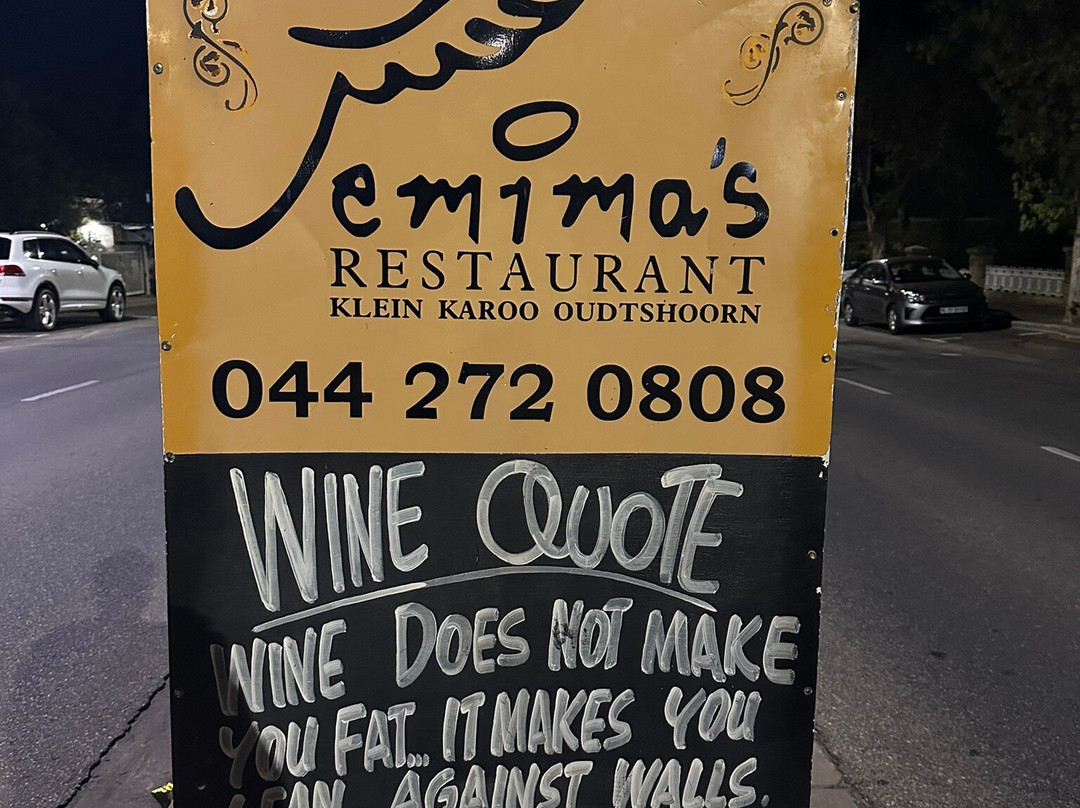 Jemima's
RESTAURANT
KLEIN KAROO OUDTSHOORN
044 272 0808
WINE QUOTE
WINE DOES NOT MAKE
YOU FAT... IT MAKES YOU
LEAN AGAINST WALLS.